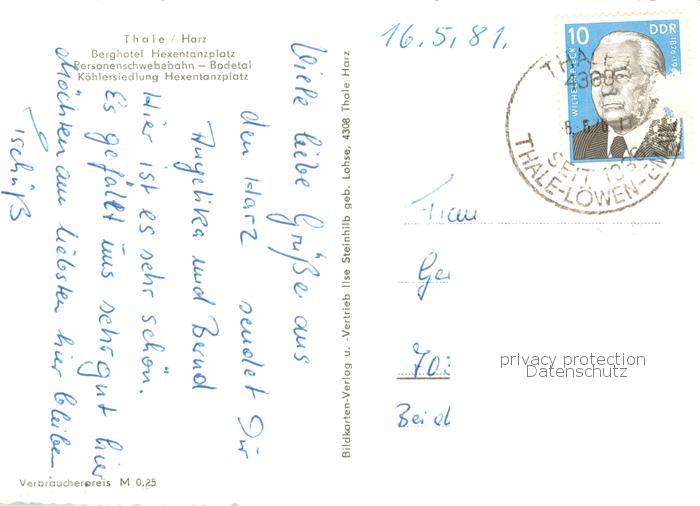 Thale / Harz
Berghotel Hexentanzplatz
Personenschwebebahn – Bodetal
Köhlersiedlung Hexentanzplatz
Viele liebe Grüße aus
den Harz sendet Dir
Angelika und Bernd
Hier ist es sehr schön.
Es gefällt uns sehr gut hier
Möchten am liebsten hier bleiben.
Tschüß
Verbraucherpreis M 0,25
Bildkarten-Verlag u. -Vertrieb Ilse Steinhilb geb. Lohse, 4308 Thale Harz
16.5.81.
10 DDR
WILHELM PIECK 1876-196
THALE
4308
SEIT
THALE-LÖWEN-EMAIL
Frau
Ge
703
privacy protection
Datenschutz